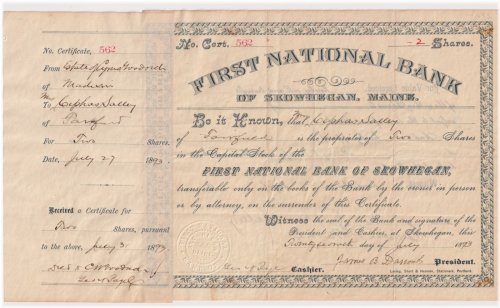 No. Certificate, 562
From
of
To Cephas Salley
of
For Two Shares.
Date, July 27 1893
Received a Certificate for
Two Shares, pursuant
to the above, July 3 1893
No. Cert. 562 -2 Shares.
FIRST NATIONAL BANK
OF SKOWHEGAN, MAINE.
Be it Known, that Cephas Salley
of is the proprietor of Two Shares
in the Capital Stock of the
FIRST NATIONAL BANK OF SKOWHEGAN,
transferable only on the books of the Bank by the owner in person
or by attorney, on the surrender of this Certificate.
Witness the seal of the Bank and signature of the
President and Cashier, at Skowhegan, this
Twenty seventh day of July 1893
President.
Cashier.
Loring, Short & Harmon, Stationers, Portland.